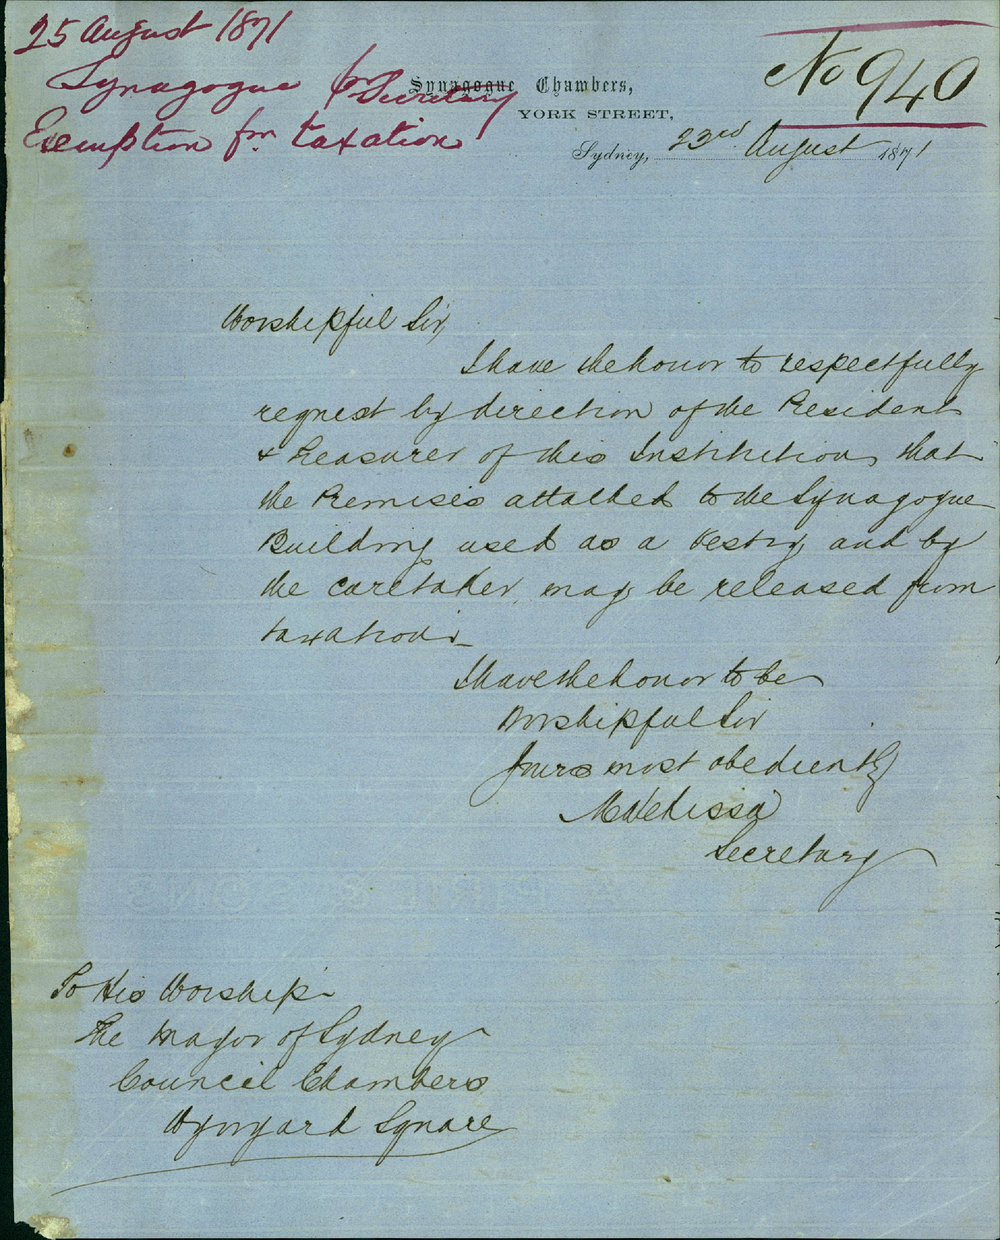 25 August 1871
Synagogue for Secretary
Exemption fm. taxation
No 940
Synagogue Chambers,
YORK STREET,
Sydney, 23rd August 1871
Worshipful Sir,
I have the honor to respectfully
request by direction of the President
& Treasurer of this Institution, that
the Premises attached to the Synagogue
Building used as a Vestry, and by
the caretaker, may be released from
taxation.
I have the honor to be
Worshipful Sir
Yours most obediently
Secretary
To His Worship
The Mayor of Sydney
Council Chambers
Wynyard Square